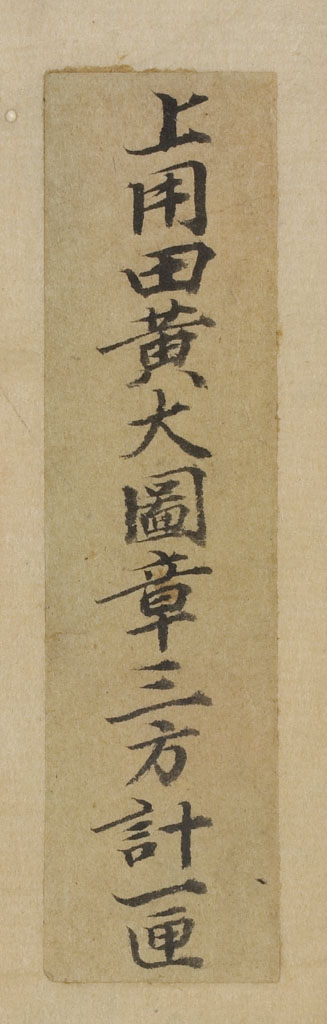 上用田黃大圖章三方計一匣